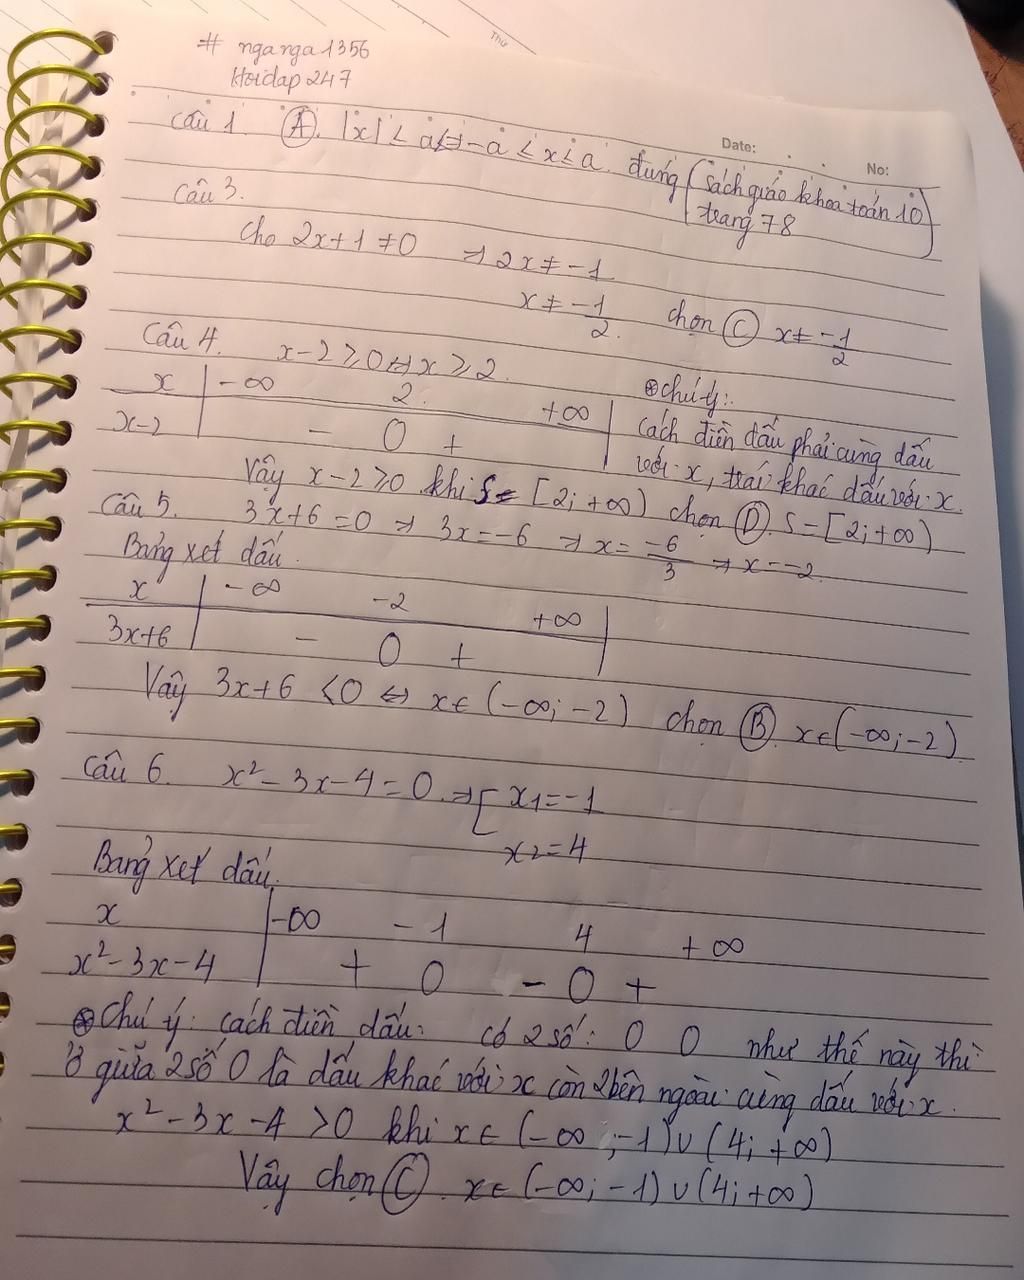 # nganga1356
Hoidap247
Thứ
Date: No:
Câu 1. Ⓐ. |x| ≤ a ⇔ -a ≤ x ≤ a. đúng (sách giáo khoa toán 10
trang 78)
Câu 3.
Cho 2x+1 ≠ 0 ⇒ 2x ≠ -1
x ≠ -1/2. chọn Ⓒ x ≠ -1/2
Câu 4. x-2 ≥ 0 ⇔ x ≥ 2.
x | -∞ 2 +∞
x-2 | - 0 +
⊛ chú ý:
Cách điền dấu phải cùng dấu
với x, trái khác dấu với x.
Vậy x-2 ≥ 0 khi S = [2; +∞) chọn Ⓓ. S = [2; +∞)
Câu 5. 3x+6 = 0 ⇒ 3x = -6 ⇒ x = -6/3 ⇒ x = -2.
Bảng xét dấu.
x | -∞ -2 +∞
3x+6 | - 0 +
Vậy 3x+6 < 0 ⇔ x ∈ (-∞; -2) chọn Ⓑ. x ∈ (-∞; -2)
Câu 6. x² - 3x - 4 = 0. ⇒ [ x1 = -1
x2 = 4
Bảng xét dấu.
x | -∞ -1 4 +∞
x² - 3x - 4 | + 0 - 0 +
⊛ Chú ý: cách điền dấu: có 2 số: 0 0 như thế này thì
Ở giữa 2 số 0 là dấu khác với x còn 2 bên ngoài cùng dấu với x.
x² - 3x - 4 > 0 khi x ∈ (-∞; -1) ∪ (4; +∞)
Vậy chọn Ⓒ. x ∈ (-∞; -1) ∪ (4; +∞)